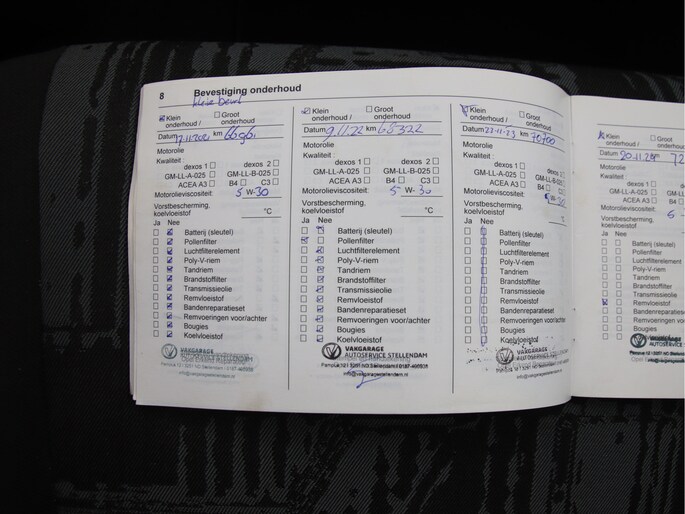 8 Bevestiging onderhoud
kleine beurt
Klein onderhoud / Groot onderhoud
Datum 17.11.2021 km
Motorolie
Kwaliteit :
dexos 1 dexos 2
GM-LL-A-025 GM-LL-B-025
ACEA A3 B4 C3
Motorolieviscositeit: 5 W-30
Vorstbescherming, koelvloeistof °C
Ja Nee
Batterij (sleutel)
Pollenfilter
Luchtfilterelement
Poly-V-riem
Tandriem
Brandstoffilter
Transmissieolie
Remvloeistof
Bandenreparatieset
Remvoeringen voor/achter
Bougies
Koelvloeistof
VAKGARAGE
AUTOSERVICE STELLENDAM
Klein onderhoud / Groot onderhoud
Datum 9.11.22 km 68322
Motorolie
Kwaliteit :
dexos 1 dexos 2
GM-LL-A-025 GM-LL-B-025
ACEA A3 B4 C3
Motorolieviscositeit: 5 W-30
Vorstbescherming, koelvloeistof °C
Ja Nee
Batterij (sleutel)
Pollenfilter
Luchtfilterelement
Poly-V-riem
Tandriem
Brandstoffilter
Transmissieolie
Remvloeistof
Bandenreparatieset
Remvoeringen voor/achter
Bougies
Koelvloeistof
VAKGARAGE
AUTOSERVICE STELLENDAM
info@vakgaragestellendam.nl
Klein onderhoud / Groot onderhoud
Datum 22-11-23 km 70700
Motorolie
Kwaliteit :
dexos 1 dexos 2
GM-LL-A-025 GM-LL-B-025
ACEA A3 B4 C3
Motorolieviscositeit: 5 W-30
Vorstbescherming, koelvloeistof °C
Ja Nee
Batterij (sleutel)
Pollenfilter
Luchtfilterelement
Poly-V-riem
Tandriem
Brandstoffilter
Transmissieolie
Remvloeistof
Bandenreparatieset
Remvoeringen voor/achter
Bougies
Koelvloeistof
VAKGARAGE
AUTOSERVICE STELLENDAM
Klein onderhoud / Groot onderhoud
Datum 20.11
Motorolie
Kwaliteit :
dexos 1
GM-LL-A-025
ACEA A3
Motorolieviscositeit: 5
Vorstbescherming, koelvloeistof
Ja Nee
Batterij (sleutel)
Pollenfilter
Luchtfilterelement
Poly-V-riem
Tandriem
Brandstoffilter
Transmissieolie
Remvloeistof
Bandenreparatieset
Remvoeringen voor/achter
Bougies
Koelvloeistof
VAKGARAGE
AUTOSERVICE STELLENDAM